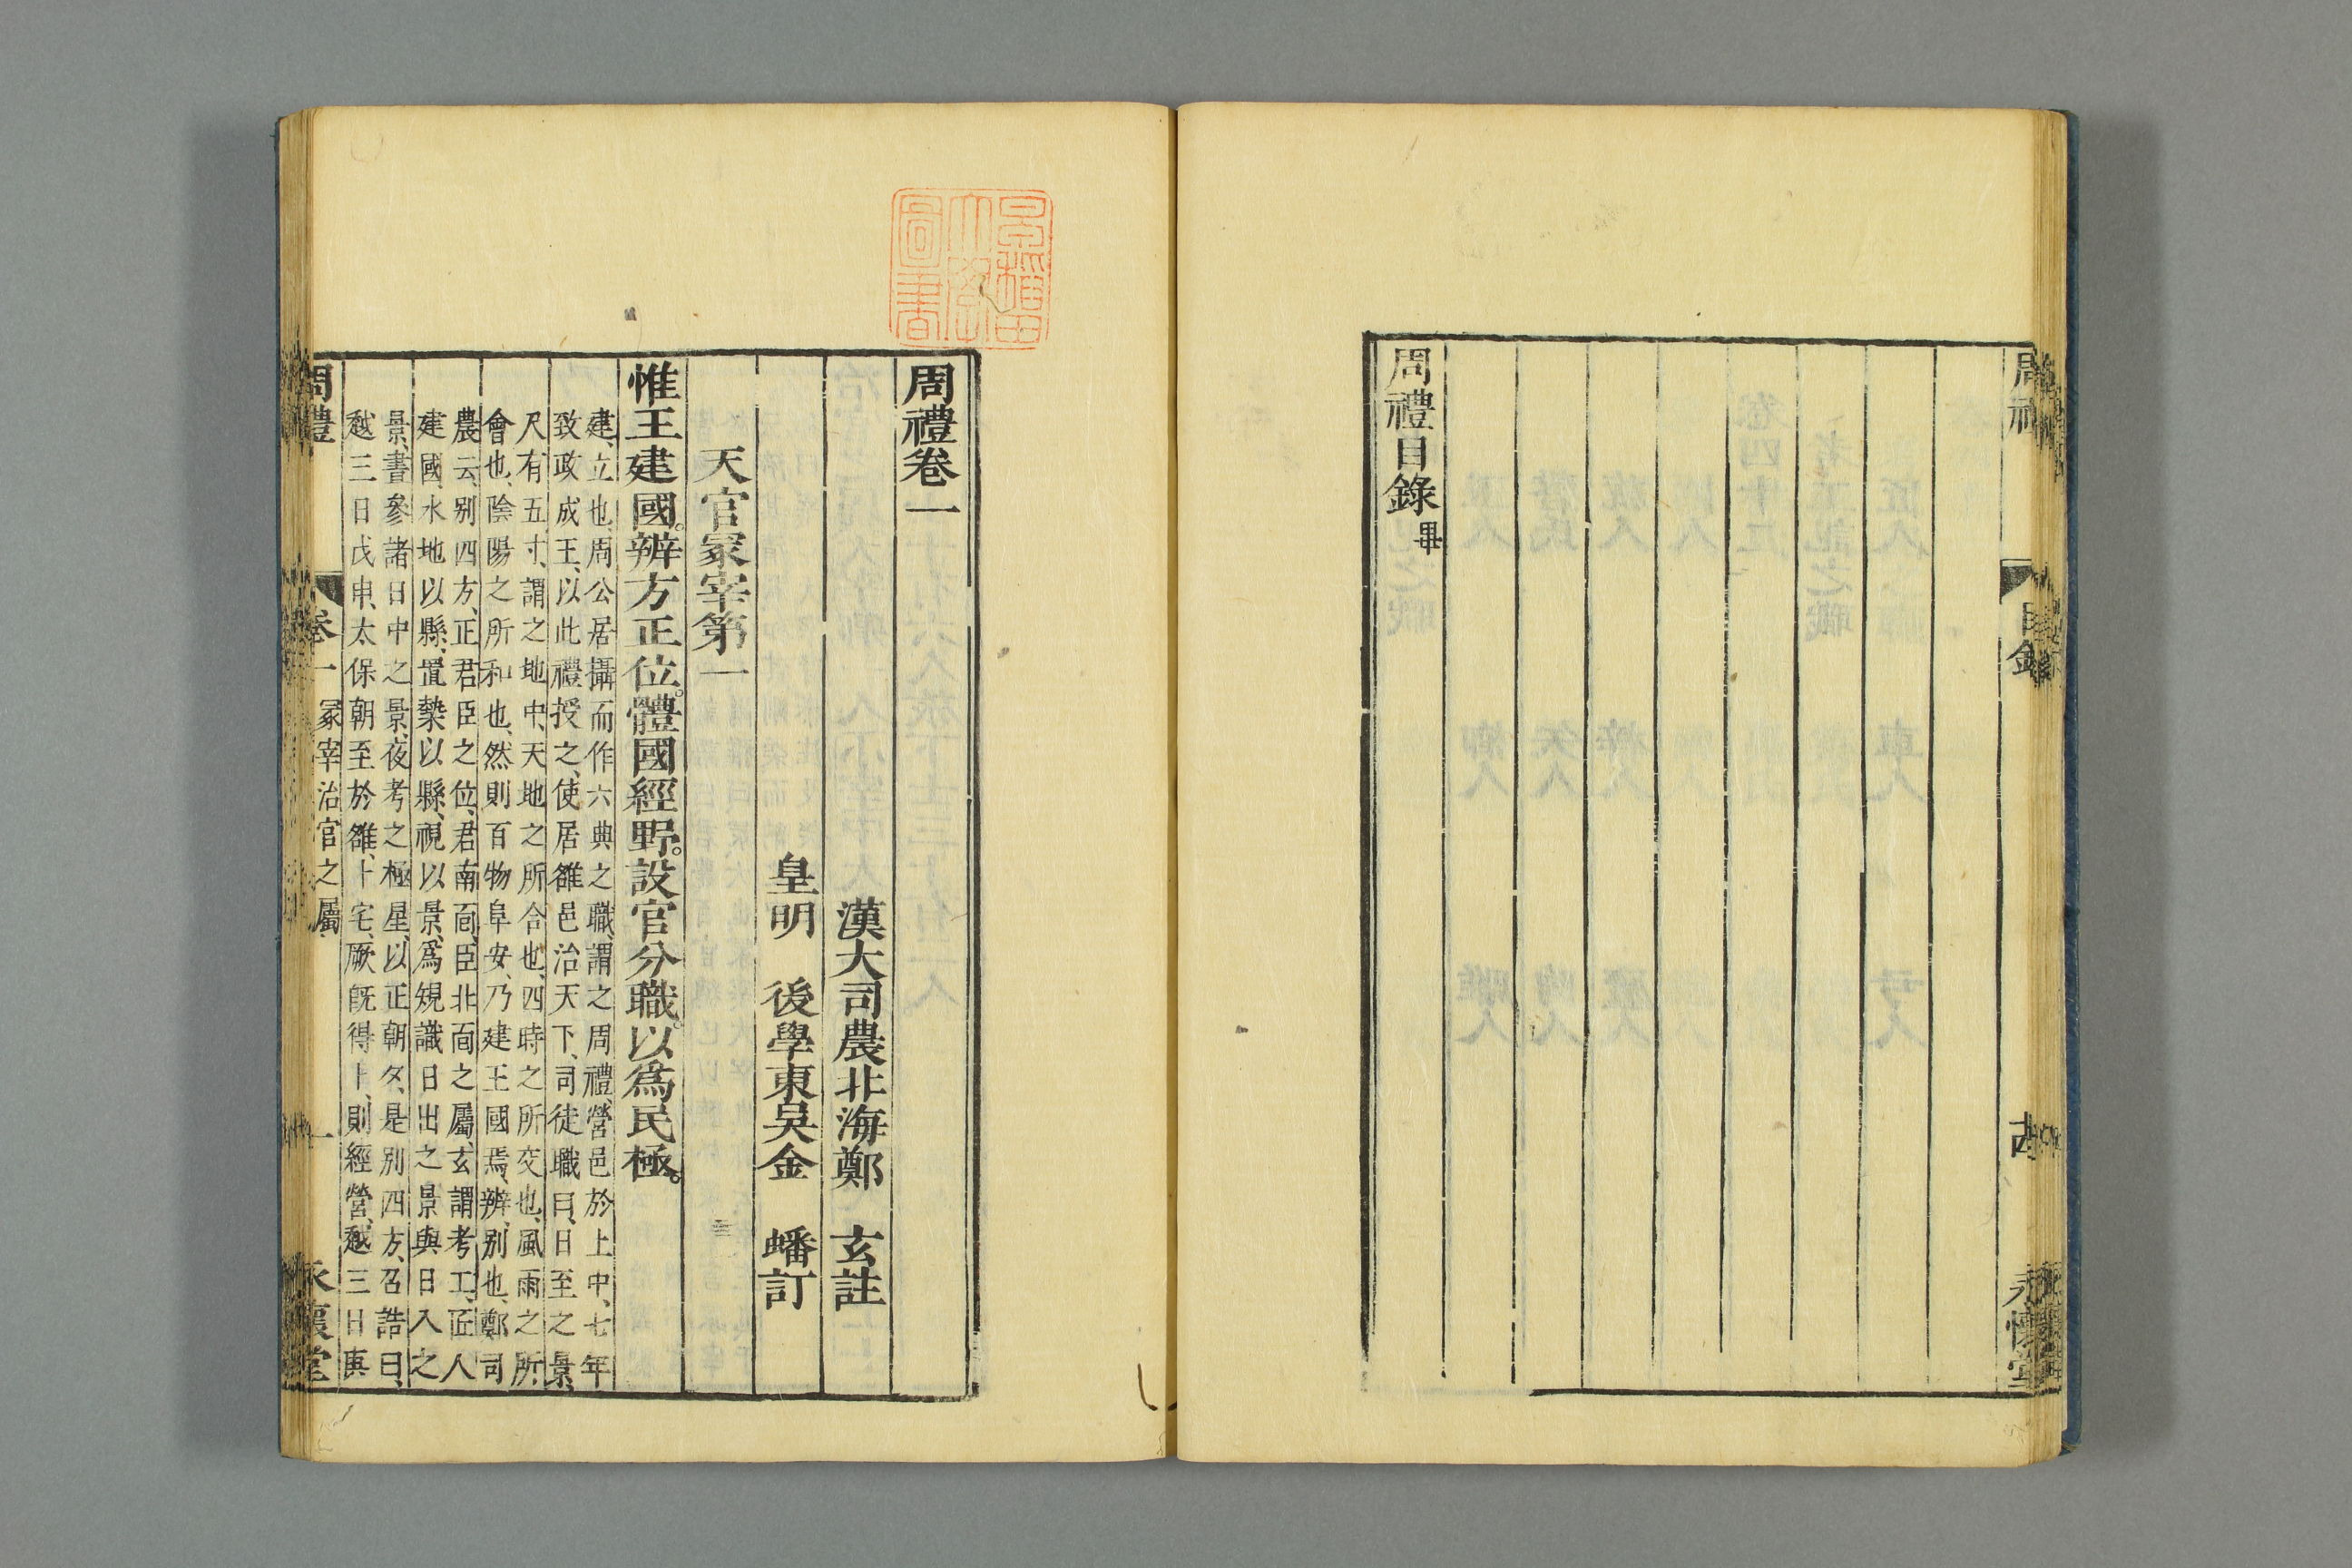 周禮
目錄
永懷堂
周禮目錄畢
早稻田
大學
圖書
周禮卷一
漢大司農北海鄭　玄註
皇明　後學東吳金　蟠訂
天官冢宰第一
惟王建國。辨方正位。體國經野。設官分職。以爲民極。
建、立也、周公居攝而作六典之職、謂之周禮、營邑於上中、七年
致政成王、以此禮授之、使居雒邑治天下、司徒職曰、日至之景、
尺有五寸、謂之地中、天地之所合也、四時之所交也、風雨之所
會也、陰陽之所和也、然則百物阜安、乃建王國焉、辨、別也、鄭司
農云、別四方、正君臣之位、君南面、臣北面之屬、玄謂考工、匠人
建國、水地以縣、置槷以縣、視以景、爲規識日出之景與日入之
景、晝參諸日中之景、夜考之極星、以正朝夕、是別四方、召誥曰、
越三日戊申、太保朝至於雒、卜宅、厥既得卜、則經營、越三日
周禮
卷一
冢宰治官之屬
一
永懷堂